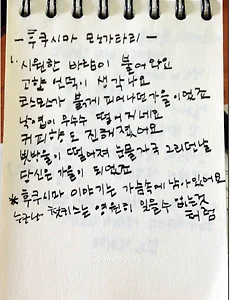 - 후쿠시마 모노가타리 -
시원한 바람이 불어와요
고향 언덕이 생각나요
코스모스가 붉게 피어나던 가을이었죠
낙엽이 우수수 떨어지네요
커피향도 진해지겠어요
빗방울이 떨어져 눈물자국 그리던 날
당신은 가을이 되었죠
* 후쿠시마 이야기는 가슴속에 남아있어요
누구나 첫키스는 영원히 잊을수 없는것
처럼